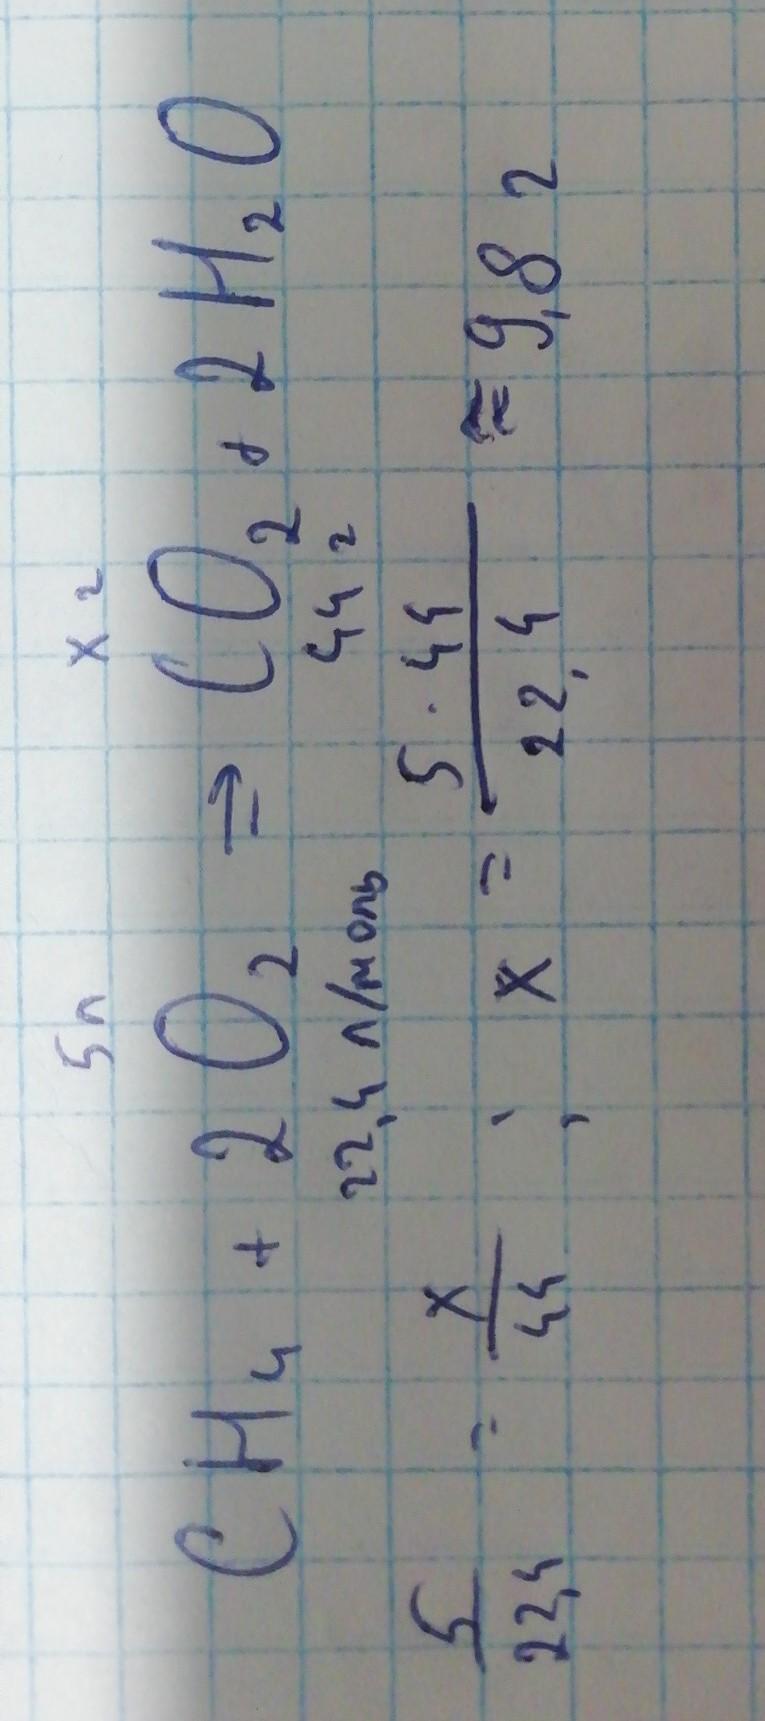 5л х г
CH₄ + 2O₂ ⇒ CO₂ + 2H₂O
22,4 л/моль 44 г
5/22,4 = х/44 ; х = 5 · 44/22,4 ≈ 9,8 г